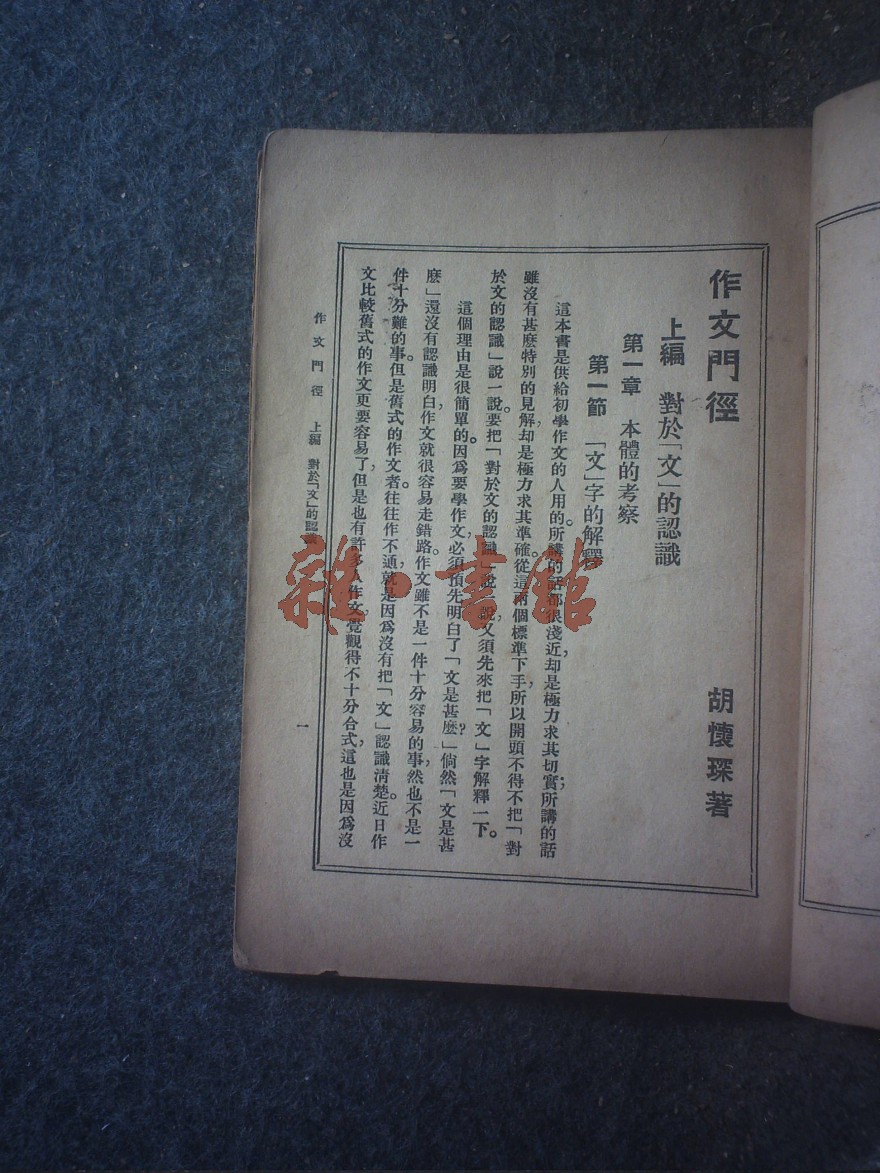 作文門徑
胡懷琛著
上編　對於「文」的認識
第一章　本體的考察
第一節　「文」字的解釋
這本書是供給初學作文的人用的。所講的話都很淺近，却是極力求其切實；所講的話
雖沒有甚麼特別的見解，却是極力求其準確。從這兩個標準下手，所以開頭不得不把「對
於文的認識」說一說。要把「對於文的認識」說一說，又須先來把「文」字解釋一下。
這個理由是很簡單的。因爲要學作文，必須預先明白了「文是甚麼？」倘然「文是甚
麽」還沒有認識明白，作文就很容易走錯路。作文雖不是一件十分容易的事，然也不是一
件十分難的事。但是舊式的作文者，往往作不通，就是因爲沒有把「文」認識清楚。近日作
文比較舊式的作文更要容易了，但是也有許多人作文，覺觀得不十分合式，這也是因爲沒
作文門徑　上編　對於「文」的認
一
雜·書館